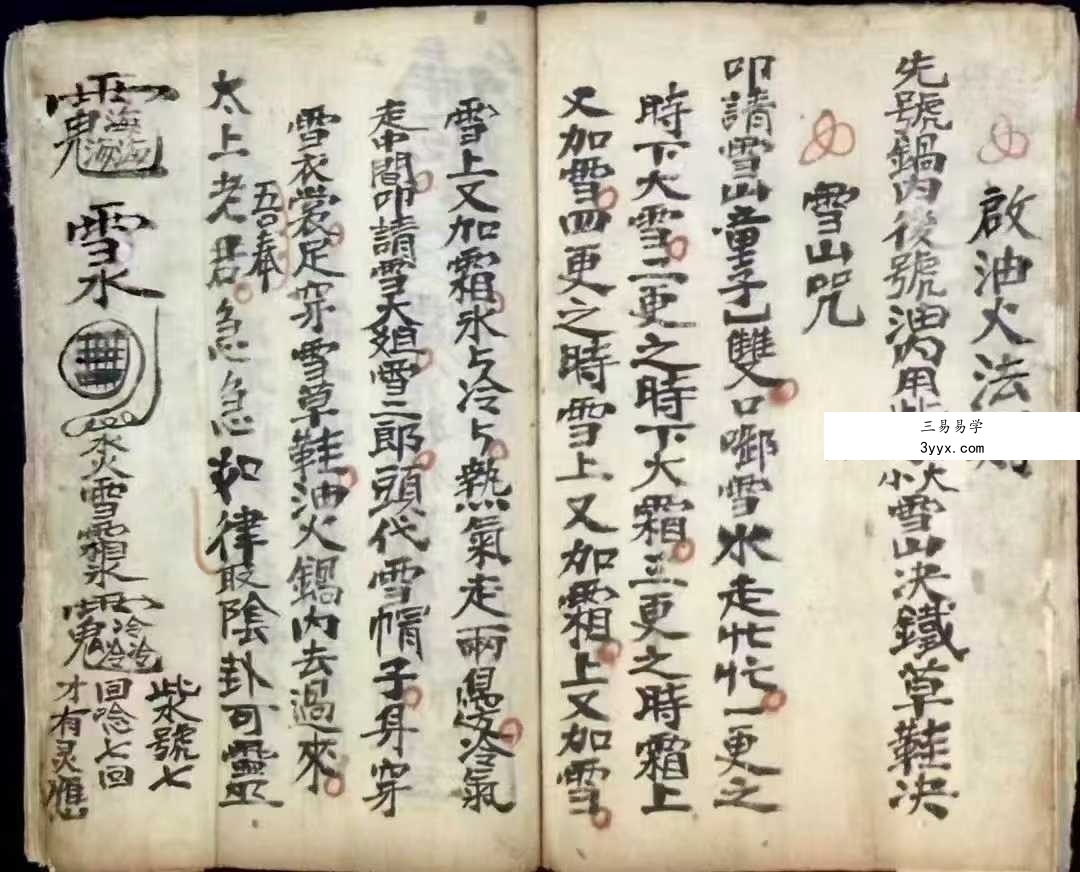 啟油火法
先號鍋內後號油內用 火雪山决鐵草鞋决
雪山咒
叩請雪山童子乚雙口啣雪水走忙忙一更之
時下大雪二更之時下大霜三更之時霜上
又加雪四更之時雪上又加霜上又加雪
雪上又加霜氷与冷与熱氣走兩邊冷氣
走中間叩請雪大姐雪二郎頭代雪帽子身穿
雪衣裳足穿雪草鞋油火鍋內去過來
吾奉
太上老君急急如律取陰卦可靈
雪水
雪霜
號七
回唸七回
才有灵應
三易易学
3yyx.com